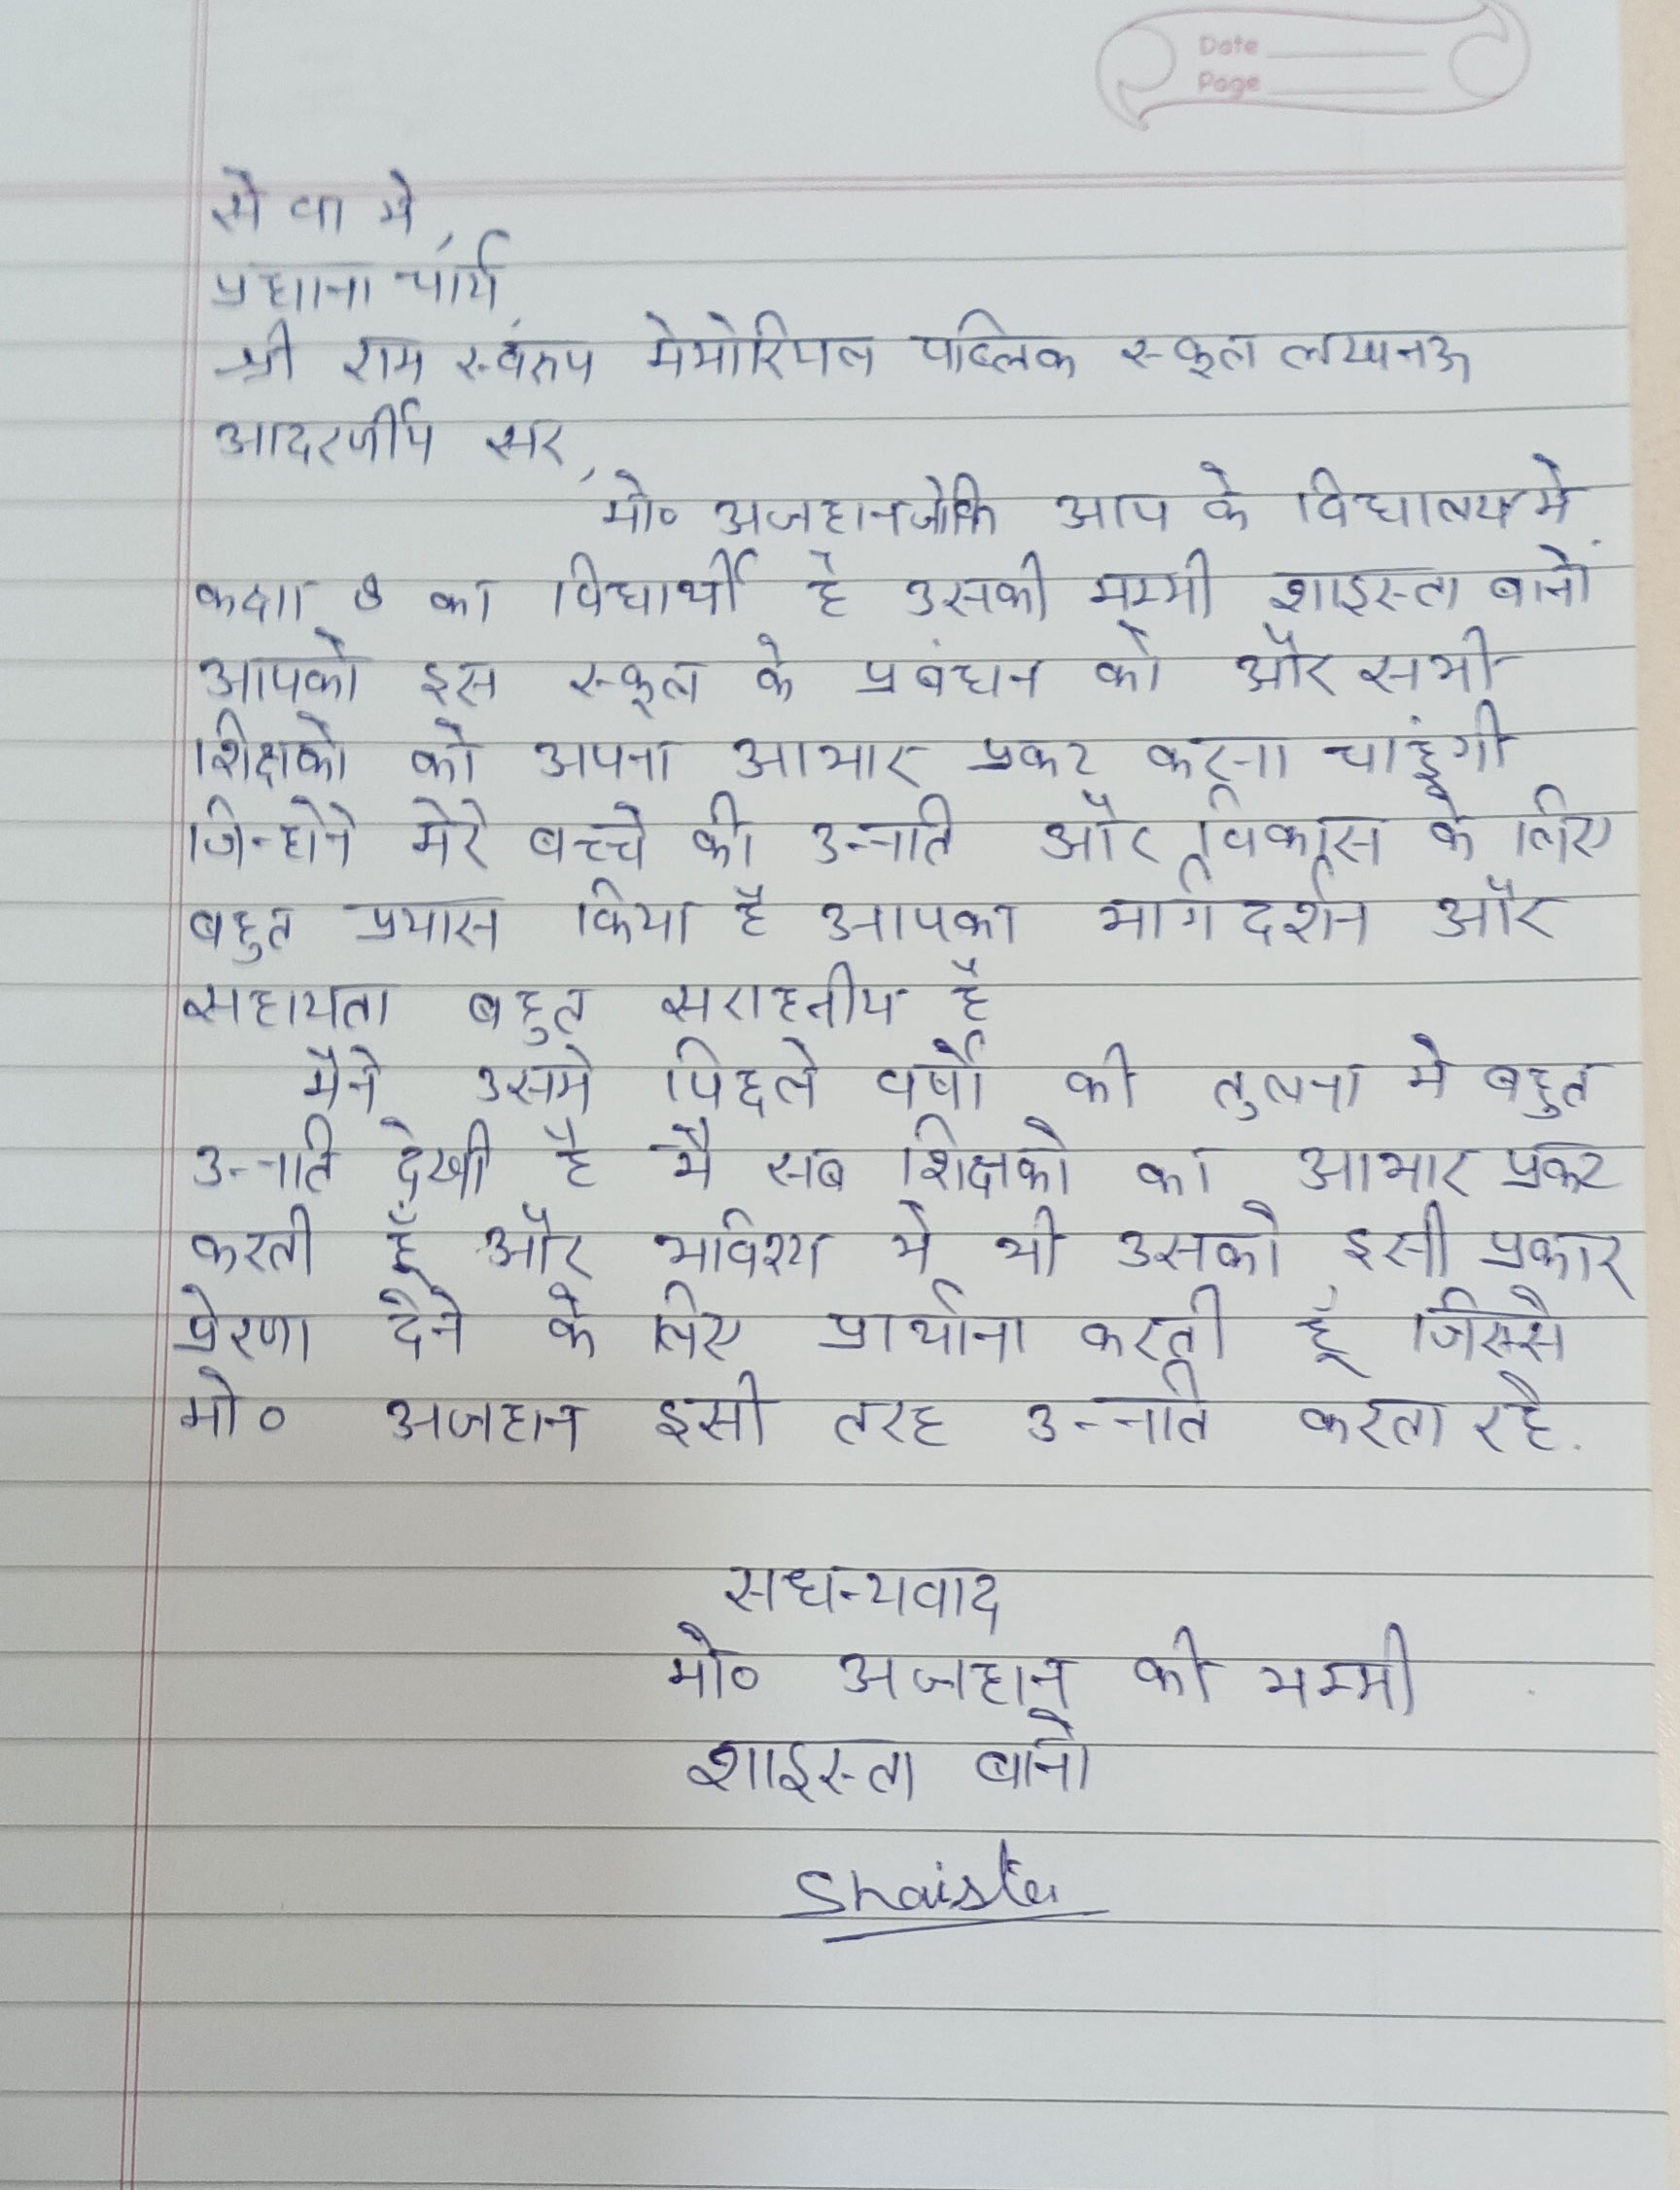 Date
Page
सेवा मे,
प्रधानाचार्य,
श्री राम स्वंरुप मेमोरियल पब्लिक स्कूल लखनऊ
आदरणीय सर,
मो० अजहानजोकि आप के विधालय मे
कक्षा 8 का विधार्थी है उसकी मम्मी शाइस्ता बानो
आपको इस स्कूल के प्रबंधन को और सभी
शिक्षको को अपना आभार प्रकट करना चाहूंगी
जिन्होने मेरे बच्चे की उन्नति और विकास के लिए
बहुत प्रयास किया है आपका मार्ग दर्शन और
सहायता बहुत सराहनीय है
मैने उसमे पिछले वर्षो की तुलना मे बहुत
उन्नति देखी है मै सब शिक्षको का आभार प्रकट
करती हूँ और भविश्य मे भी उसको इसी प्रकार
प्रेरणा देने के लिए प्रार्थाना करती हूँ जिस्से
मो० अजहान इसी तरह उन्नति करता रहै.
सधन्यवाद
मो० अजहान की मम्मी
शाइस्ता बानो
Shaista